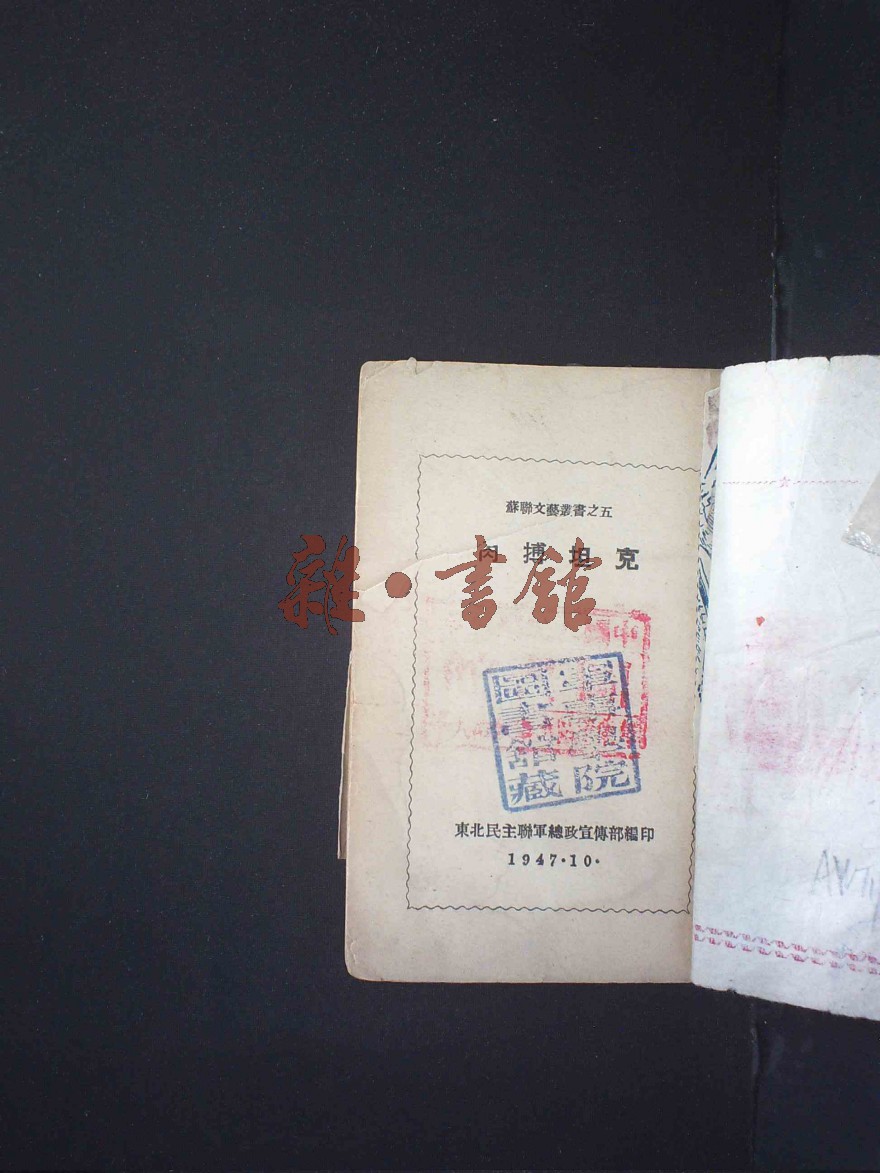 蘇聯文藝叢書之五
肉搏坦克
雜·書舘
圖書館藏
院
東北民主聯軍總政宣傳部編印
1947·10·